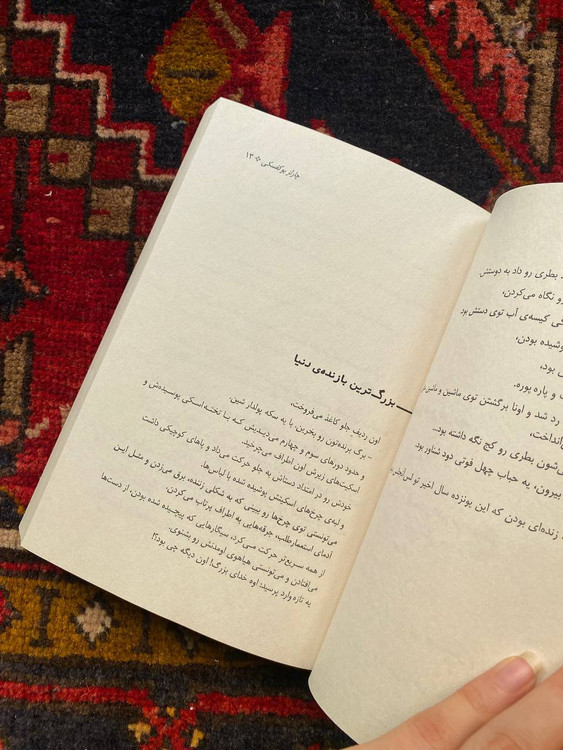 بطری رو داد به دوستش.
رو نگاه می‌کردن،
کیسه‌ی آب توی دستش بود
پوشیده بودن،
بود،
و پاره پوره.
رد شد و اونا برگشتن توی ماشین و ماشین
انداخت،
شون بطری رو کج نگه داشته بود...
بیرون، یه حباب چهل فوتی دود شناور بود
زنده‌ای بودن که این پونزده سال اخیر تو لس‌آنجلس
چارلز بوکفسکی ❖ ۱۳
بزرگ‌ترین بازنده‌ی دنیا
اون ردیف جلو کاغذ می‌فروخت،
- برگ برنده‌تون رو بخرین، با یه سکه پولدار شین.
و حدود دورهای سوم و چهارم می‌دیدیش کـه بـا تختـه اسـکی پوسـیده‌ش و
اسکیت‌های زیرش اون اطراف می‌چرخید.
خودش رو در امتداد دستاش به جلو حرکت می‌داد و پاهای کوچیکی داشت
و لبه‌ی چرخ‌های اسکیتش پوسیده شده با لباس‌ها.
می‌تونستی توی چرخ‌ها رو ببینی که به شکلی زننده، برق می‌زدن و مثـل ایـن
آدمای استعمارطلب، جرقه‌هایی به اطراف پرتاب می‌کردن.
از همه سـریع‌تر حرکت مـی‌کرد، سیگارهایی که پیچیـده شـده بودن، از دست‌ها
می‌افتادن و می‌تونستی هیاهوی اومدنش رو بشنوی.
یه تازه وارد پرسید: اوه خدای بزرگ! اون دیگه چی بود؟!